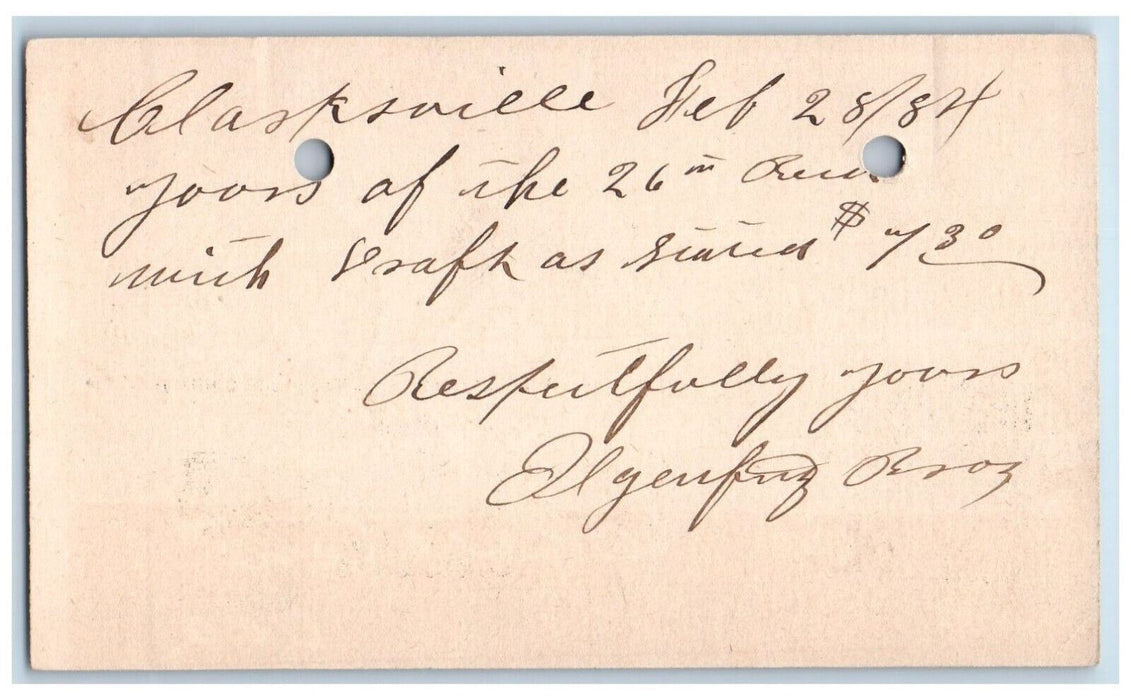 Clarksville Feb 28/84
yours of the 26th Recd
with Draft as stated $ 7 30
Respectfully yours
Broz